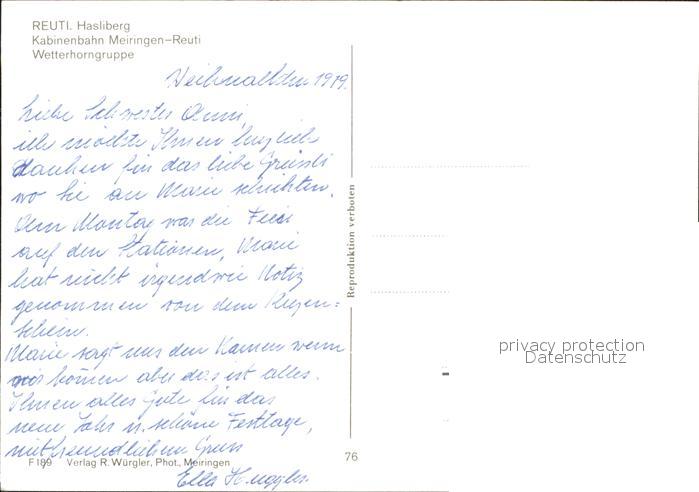 REUTI. Hasliberg
Kabinenbahn Meiringen–Reuti
Wetterhorngruppe
Weihnachten 1979.
Liebe Schwester Anni,
ich möchte Ihnen herzlich
danken für das liebe Grüssli
wo Sie an Marie schickten.
Am Montag war die Feier
auf den Stationen, Marie
hat nicht irgendwie Notiz
genommen von dem Kerzen=
schein.
Marie sagt uns den Namen wenn
wir kommen aber das ist alles.
Ihnen alles Gute für das
neue Jahr u. schöne Festtage,
mit freundlichem Gruss
Ella Huggler.
F 189 Verlag R. Würgler, Phot., Meiringen
76
Reproduktion verboten
privacy protection
Datenschutz